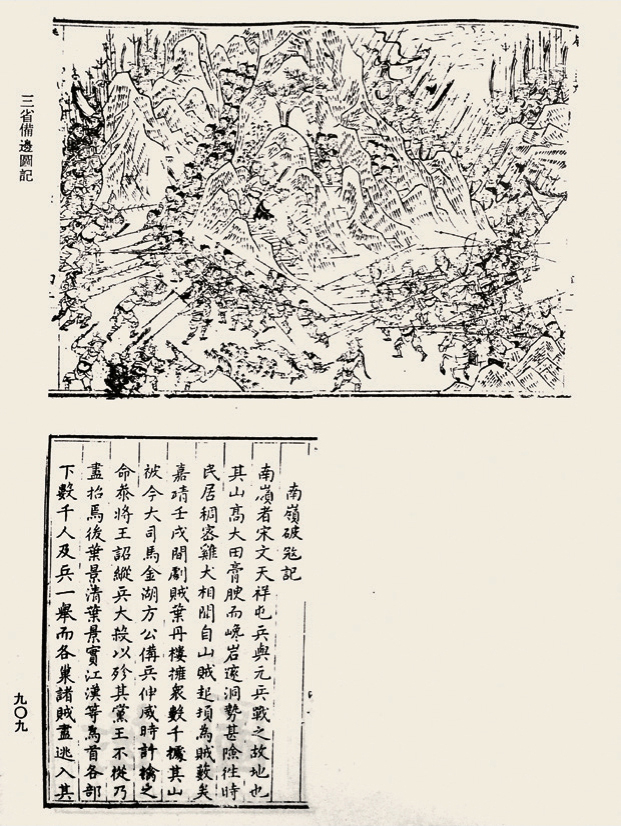 三省備邊圖記
南嶺破寇記
南嶺者宋文天祥屯兵與元兵戰之故地也
其山高大田膏腴而巉岩邃洞勢甚險徃時
民居稠密雞犬相聞自山賊起項為賊藪矣
嘉靖壬戌間劇賊葉丹樓擁衆數千據其山
彼今大司馬金湖方公備兵伸威時計擒之
命叅將王詔縱兵大殺以殄其黨王不從乃
盡招焉後葉景清葉景實江漢等為首各部
下數千人及兵一舉而各巢諸賊盡逃入其
九〇九